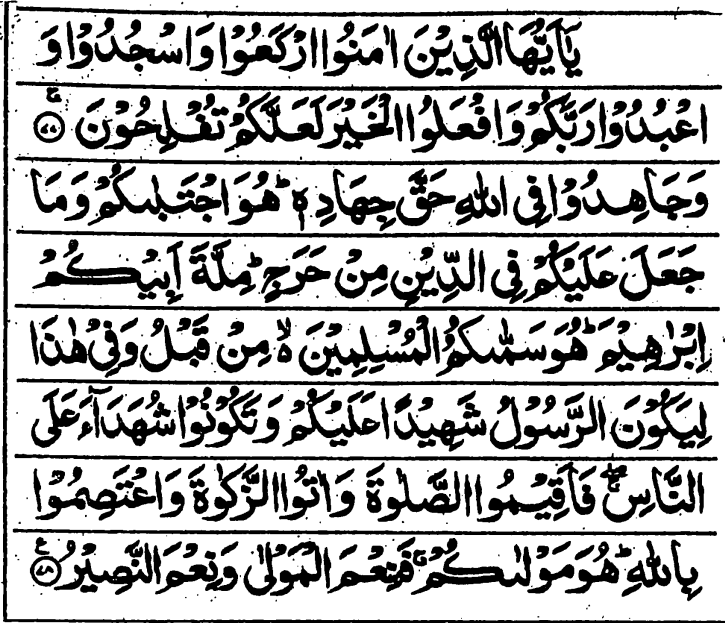 يٰۤاَيُّهَا الَّذِيْنَ اٰمَنُوا ارْكَعُوْا وَاسْجُدُوْا وَ
اعْبُدُوْا رَبَّكُمْ وَافْعَلُوا الْخَيْرَ لَعَلَّكُمْ تُفْلِحُوْنَ ۚ‏﴿۷۷﴾
وَجَاهِدُوْا فِى اللّٰهِ حَقَّ جِهَادِهٖ ؕ هُوَ اجْتَبٰىكُمْ وَمَا
جَعَلَ عَلَيْكُمْ فِى الدِّيْنِ مِنْ حَرَجٍ ؕ مِلَّةَ اَبِيْكُمْ
اِبْرٰهِيْمَ ؕ هُوَ سَمّٰىكُمُ الْمُسْلِمِيْنَ ۙ۬ مِنْ قَبْلُ وَفِىْ هٰذَا
لِيَكُوْنَ الرَّسُوْلُ شَهِيْدًا عَلَيْكُمْ وَتَكُوْنُوْا شُهَدَآءَ عَلَى
النَّاسِ ۖۚ فَاَقِيْمُوا الصَّلٰوةَ وَاٰتُوا الزَّكٰوةَ وَاعْتَصِمُوْا
بِاللّٰهِ ؕ هُوَ مَوْلٰىكُمْ ۚ فَنِعْمَ الْمَوْلٰى وَنِعْمَ النَّصِيْرُ ﴿۷۸﴾